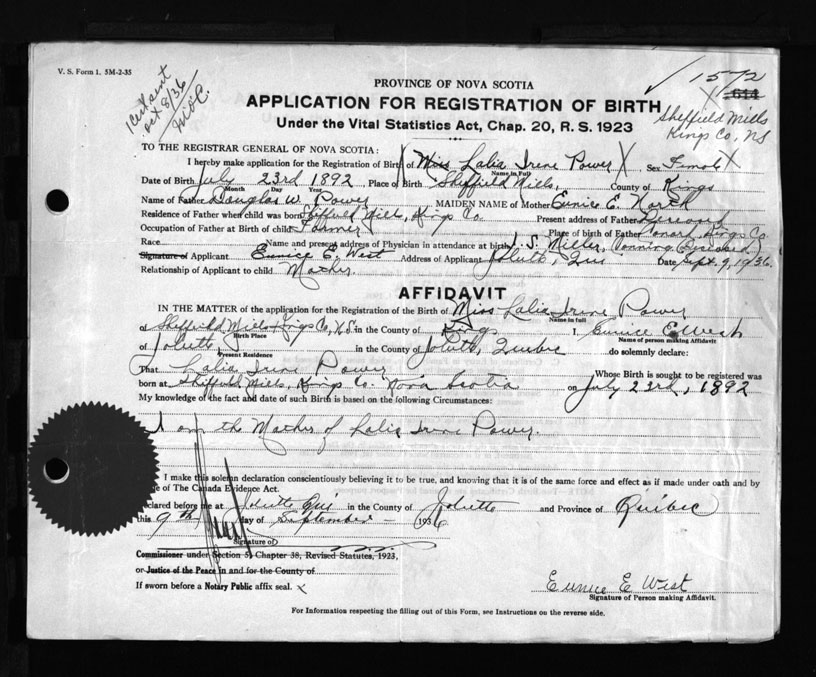 V. S. Form 1. 5M-2-35
Oct 8/36
1572
614
Sheffield Mills
Kings Co, NS
PROVINCE OF NOVA SCOTIA
APPLICATION FOR REGISTRATION OF BIRTH
Under the Vital Statistics Act, Chap. 20, R. S. 1923
TO THE REGISTRAR GENERAL OF NOVA SCOTIA:
I hereby make application for the Registration of Birth of Miss Lalia Irene Power X Sex Female X
Name in Full
Date of Birth July 23rd 1892 Place of Birth Sheffield Mills, County of Kings
Month Day Year
Name of Father Douglas W. Power MAIDEN NAME of Mother Eunice E. North
Residence of Father when child was born Sheffield Mills, Kings Co. Present address of Father Deceased
Occupation of Father at Birth of child Farmer Place of birth of Father Kings Co.
Race Name and present address of Physician in attendance at birth J. S. Miller, Canning (Deceased)
Signature of Applicant Eunice E. West Address of Applicant Joliette, Que Date Sept. 9, 1936.
Relationship of Applicant to child Mother.
AFFIDAVIT
IN THE MATTER of the application for the Registration of the Birth of Miss Lalia Irene Power
Name in full
of Sheffield Mills Kings Co, N.S. in the County of Kings I, Eunice E West
Birth Place Name of person making Affidavit
of Joliette, in the County of Joliette, Quebec do solemnly declare:
Present Residence
That Lalia Irene Power Whose Birth is sought to be registered was
born at Sheffield Mills, Kings Co. Nova Scotia on July 23rd, 1892
My knowledge of the fact and date of such Birth is based on the following Circumstances:
I am the Mother of Lalia Irene Power.
I make this solemn declaration conscientiously believing it to be true, and knowing that it is of the same force and effect as if made under oath and by
of The Canada Evidence Act.
Declared before me at Joliette Que in the County of Joliette and Province of Quebec
this 9th day of September 1936
Signature of
Commissioner under Section 51 Chapter 38, Revised Statutes, 1923,
or Justice of the Peace in and for the County of
If sworn before a Notary Public affix seal. x
Eunice E West
Signature of Person making Affidavit.
For Information respecting the filling out of this Form, see Instructions on the reverse side.